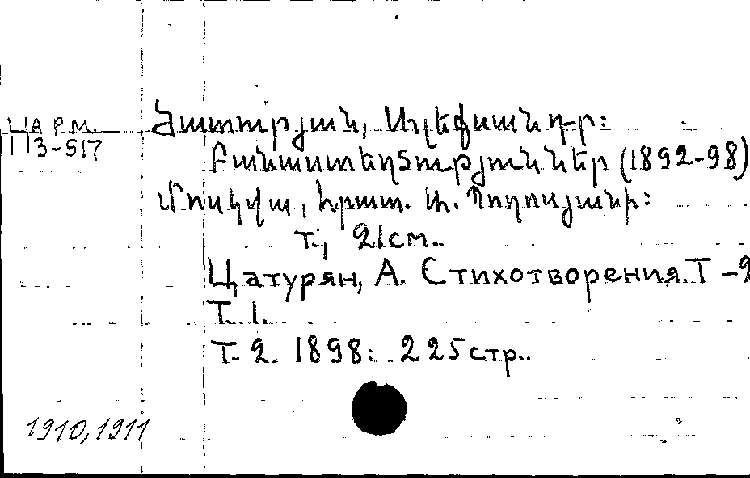 ЦАРМ.
П3-517
Ծատուրյան, Ալեքսանդր:
Բանաստեղծություններ (1892-98)
Մոսկվա, հրատ. Մ.
т., 21см..
Цатурян, А. Стихотворения. Т-2
Т. 1.
Т. 2. 1898: 225стр..
1910, 1911